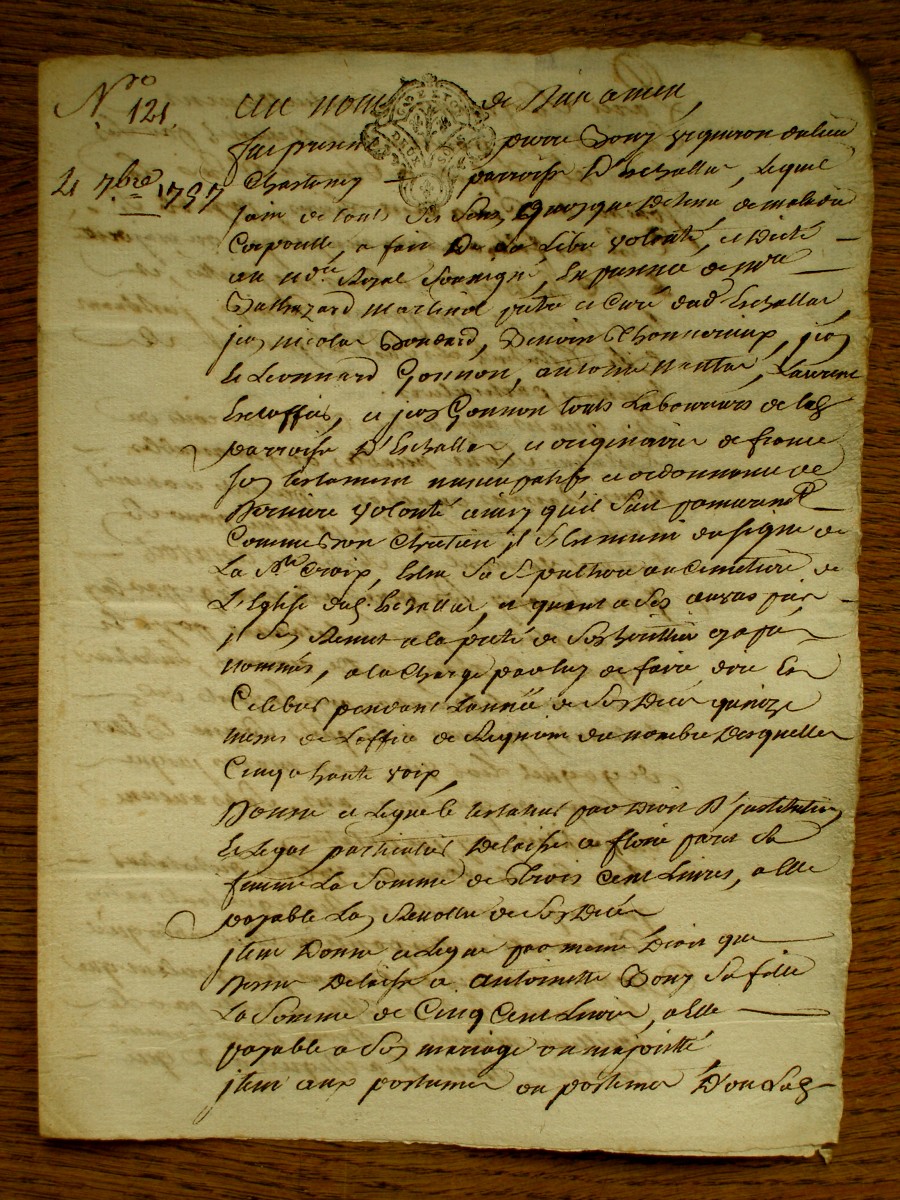 Nro 121.
au nom de Dieu amen,
fut present pierre Bony vigneron du lieu
2 7bre 1757
Chasteney parroisse D'Eschallas, Lequel
sain de touts ses sens, quoyque detenu de maladie
Corporelle, a fait De sa Libre volonté, et Dicté
au ndre Royal soussigné, En presence de mre
Balthazard martinol prêtre et Curé dud Eschallas
jean nicolas Bondard, Benoit Thonnerieux, jean
et Leonnard Gonnon, antoine nantas, Laurent
Escoffier, et jean Gonnon touts Laboureurs de lad
parroisse D'Eschallas, et originaires de france
son testament nuncupatif et ordonnance de
Derniere volonté ainsy qu'il s'ensuit
Comme bon Chretien il s'est muni du signe de
La Ste Croix, Eslu sa sepulture au Cimetiere de
L'Eglise dud. Eschallas, et quant a ses œuvres pies
il s'en remet a la pieté de son heritier cy apres
nommé, a la Charge par luy de faire dire Et
Celebrer pendant L'année de son Decès quinze
messes de L'office de Requiem du nombre Desquelles
Cinq a haute voix,
Donne et Legue le testateur par Droit D'jnstitution
et Legat particulier Delaisse a florie sa
femme La somme de Trois Cent Livres, a elle
payable Lan Revollu de son Decès
jtem Donne et Legue par meme Droit que
Dessus Delaisse a antoinette Bony sa fille
La somme de Cinq Cent Livres, a elle
payable a son mariage ou majorité
jtem aux postumes ou postumes D'ou Lad